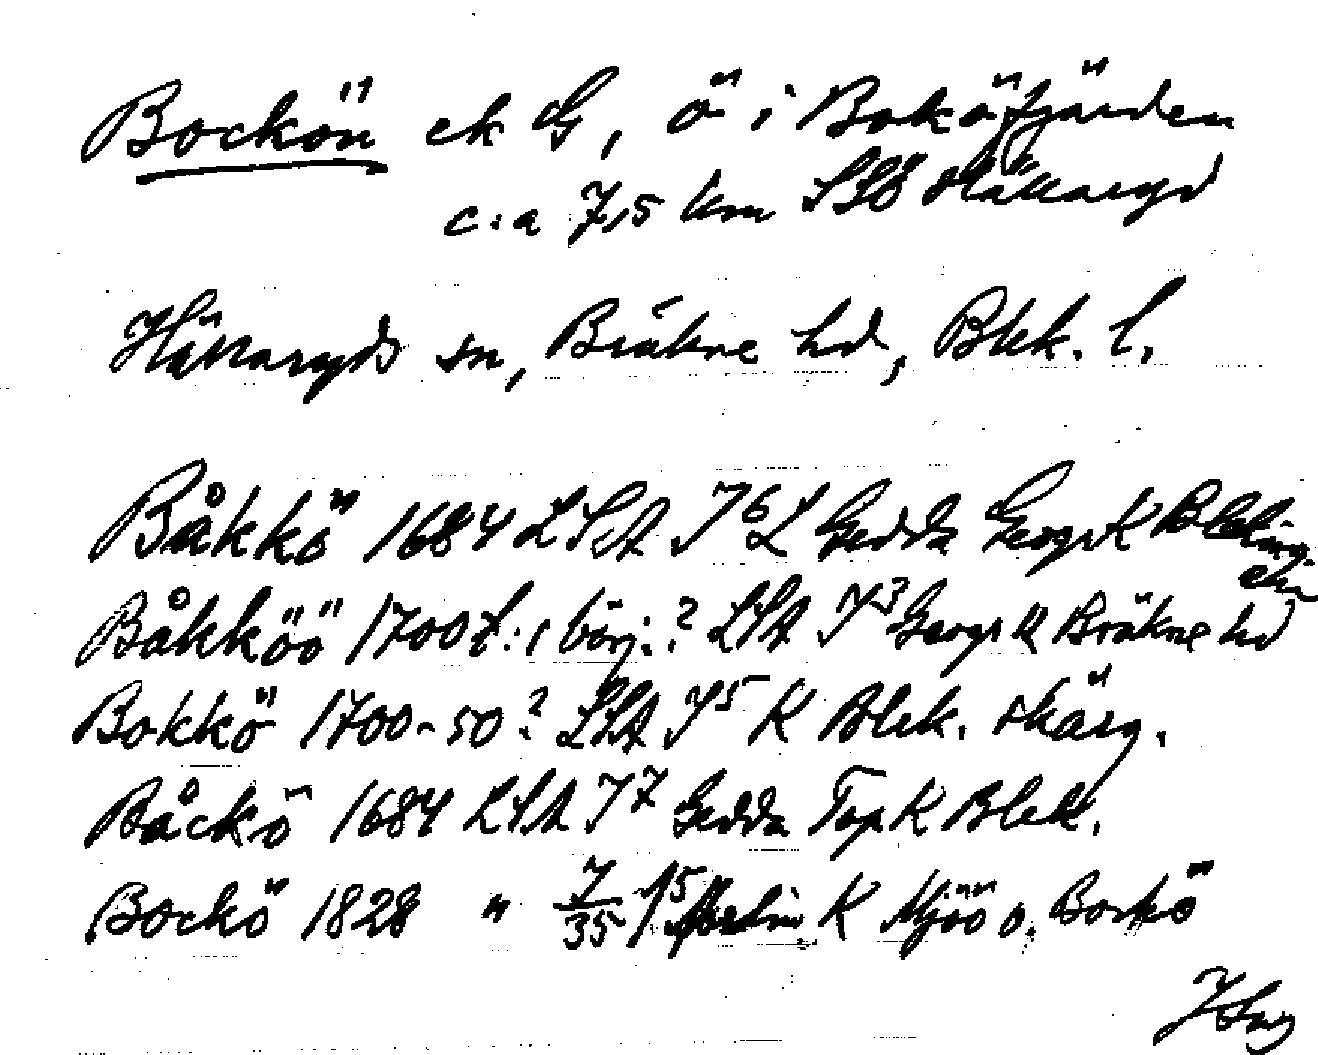 Bockön ek G, ö i Boköfjärden
c:a 7,5 km SSÖ Hällaryd
Hällaryds sn, Bräkne hd, Blek. l.
Båkkö 1684 LSA J6L Gedda GeogrK Blekingen
Båkköö 1700t.:s börj.? LSA J3 Geogr K Bräkne hd
Bokkö 1700-50? LSA J5 K Blek. skärg.
Båckö 1684 LSA J7 Gedda TopK Blek.
Bockö 1828 " 7/35 J5 K Mjöö o. Bockö